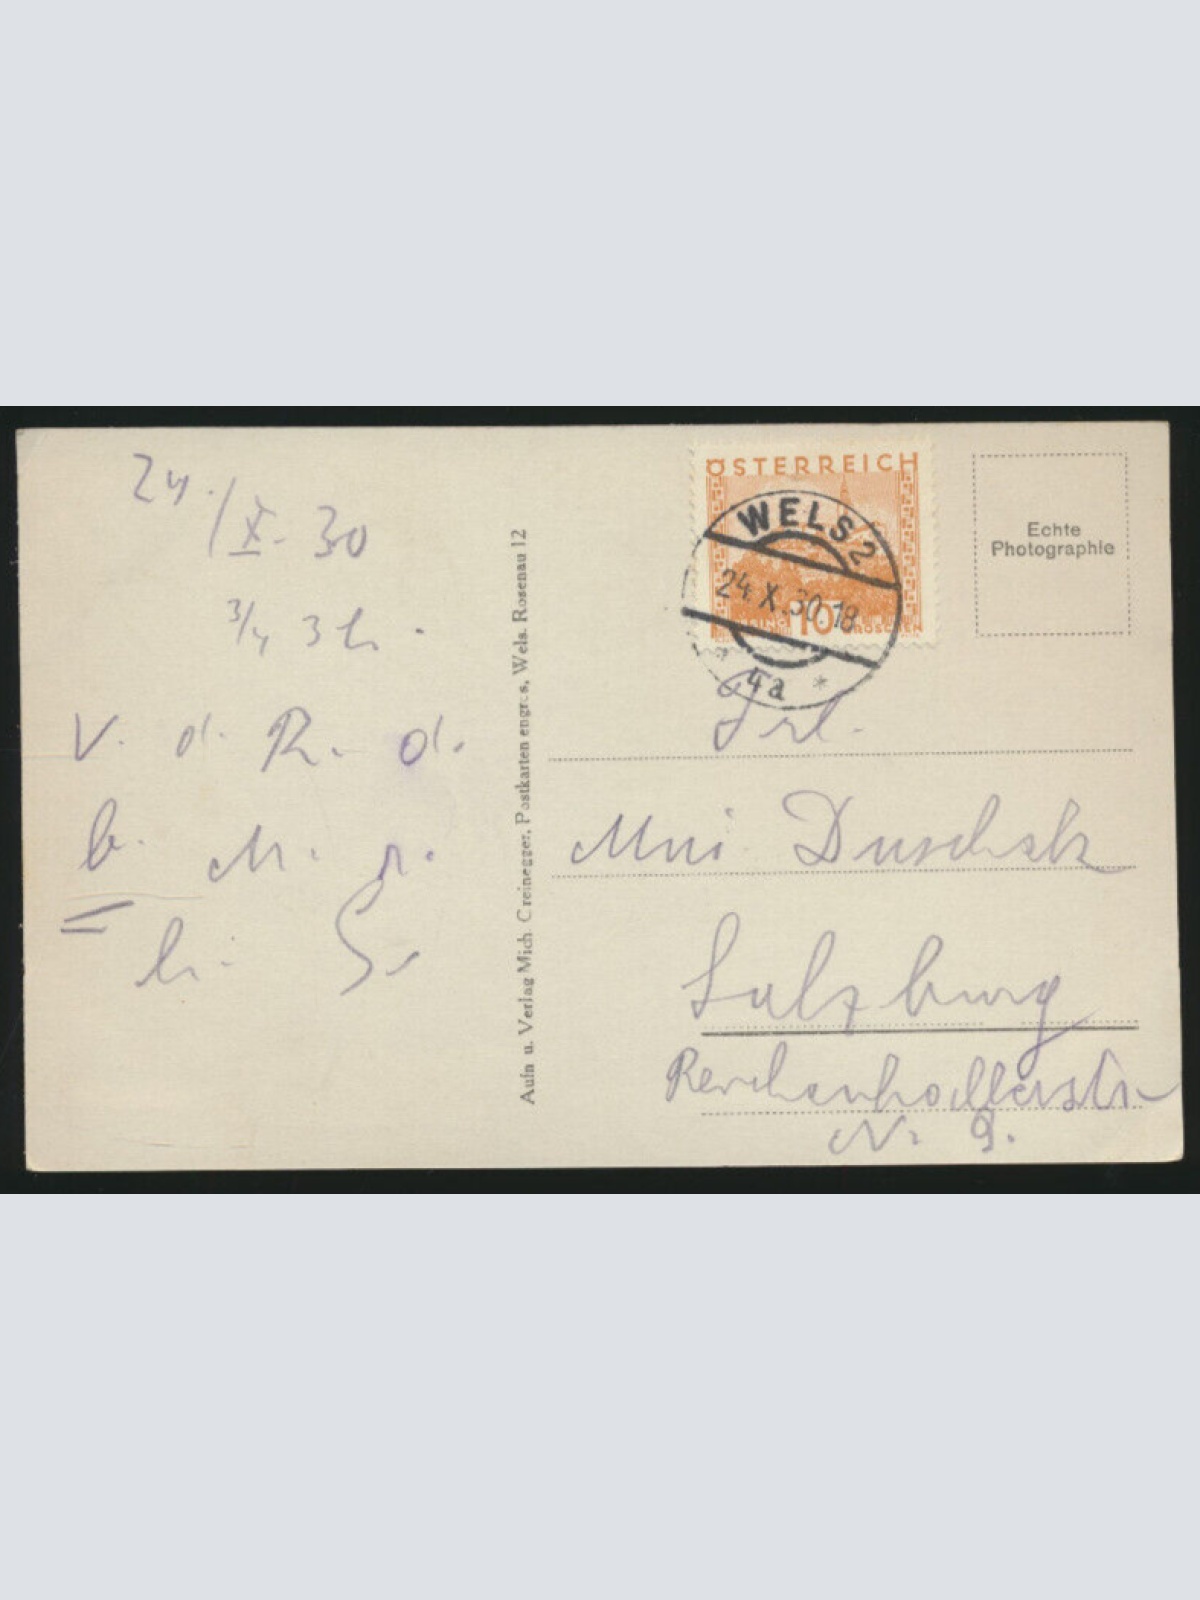 24./X. 30
3/4 3 h.
V. d. R. d.
b. M. r.
h. S.
Aufn u. Verlag Mich Creinegger, Postkarten engros, Wels. Rosenau 12
ÖSTERREICH
10 GROSCHEN
WELS 2
24.X.30.18
* 4a *
Echte
Photographie
Frl.
Duschek
Salzburg
Reichenhallerstr.
Nr. 9.